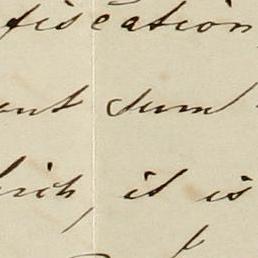 fiscation
ent sum
hich, it is